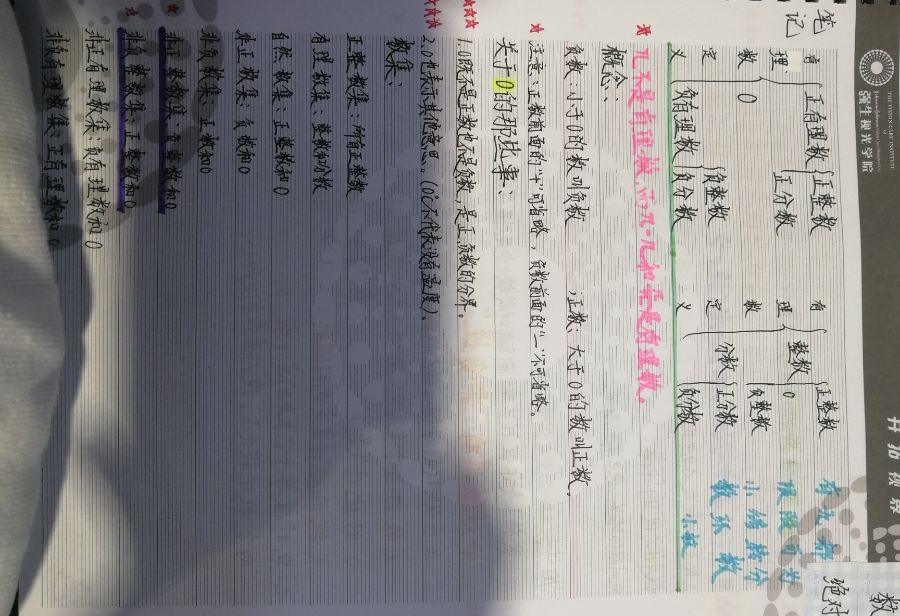 THE VISION CARE INSTITUTE
强生视光学院
开拓视界
笔记
有 正有理数 正整数 有 正整数
理 正分数 理 整数 0
数 0 数 负整数
定 负整数 定 分数 正分数
义 负有理数 负分数 义 负分数
π不是有理数,而π-π和π/π是有理数。
概念:
负数:小于0的数叫负数 ;正数:大于0的数叫正数。
注意:正数前面的“+”可省略,负数前面的“-”不可省略。
关于0的那些事:
1.0既不是正数也不是负数,是正、负数的分界。
2.0也表示其他意思。(0℃不代表没有温度)。
数集:
正整数集:所有正整数
有理数集:整数和分数
自然数集:正整数和0
非正数集:负数和0
非负数集:正数和0
非正整数集:负整数和0
非负整数集:正整数和0
非正有理数集:负有理数和0
非负有理数集:正有理数和0
数
绝对